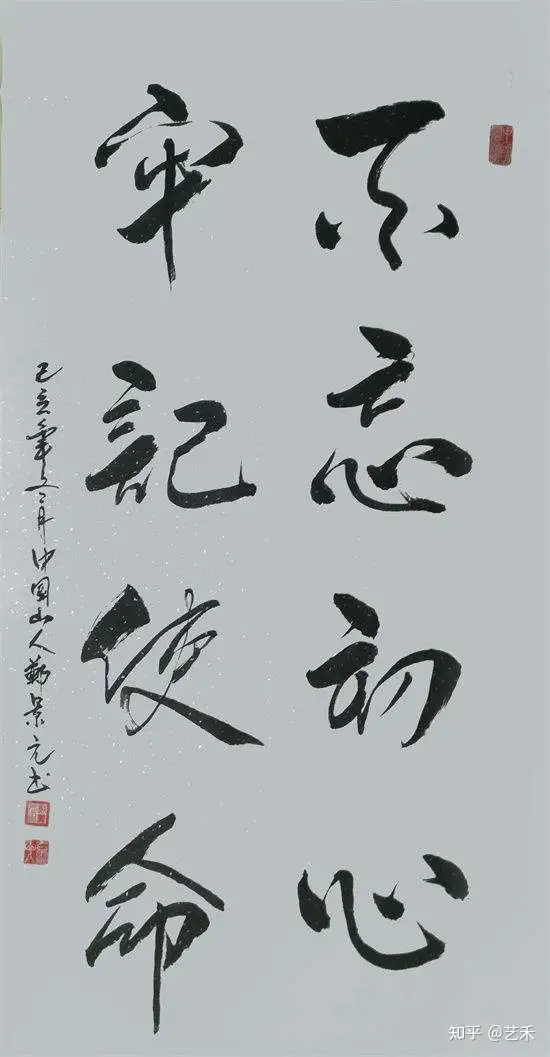 不忘初心
牢記使命
己亥年五月中国山人勤景元书
知乎 @艺禾